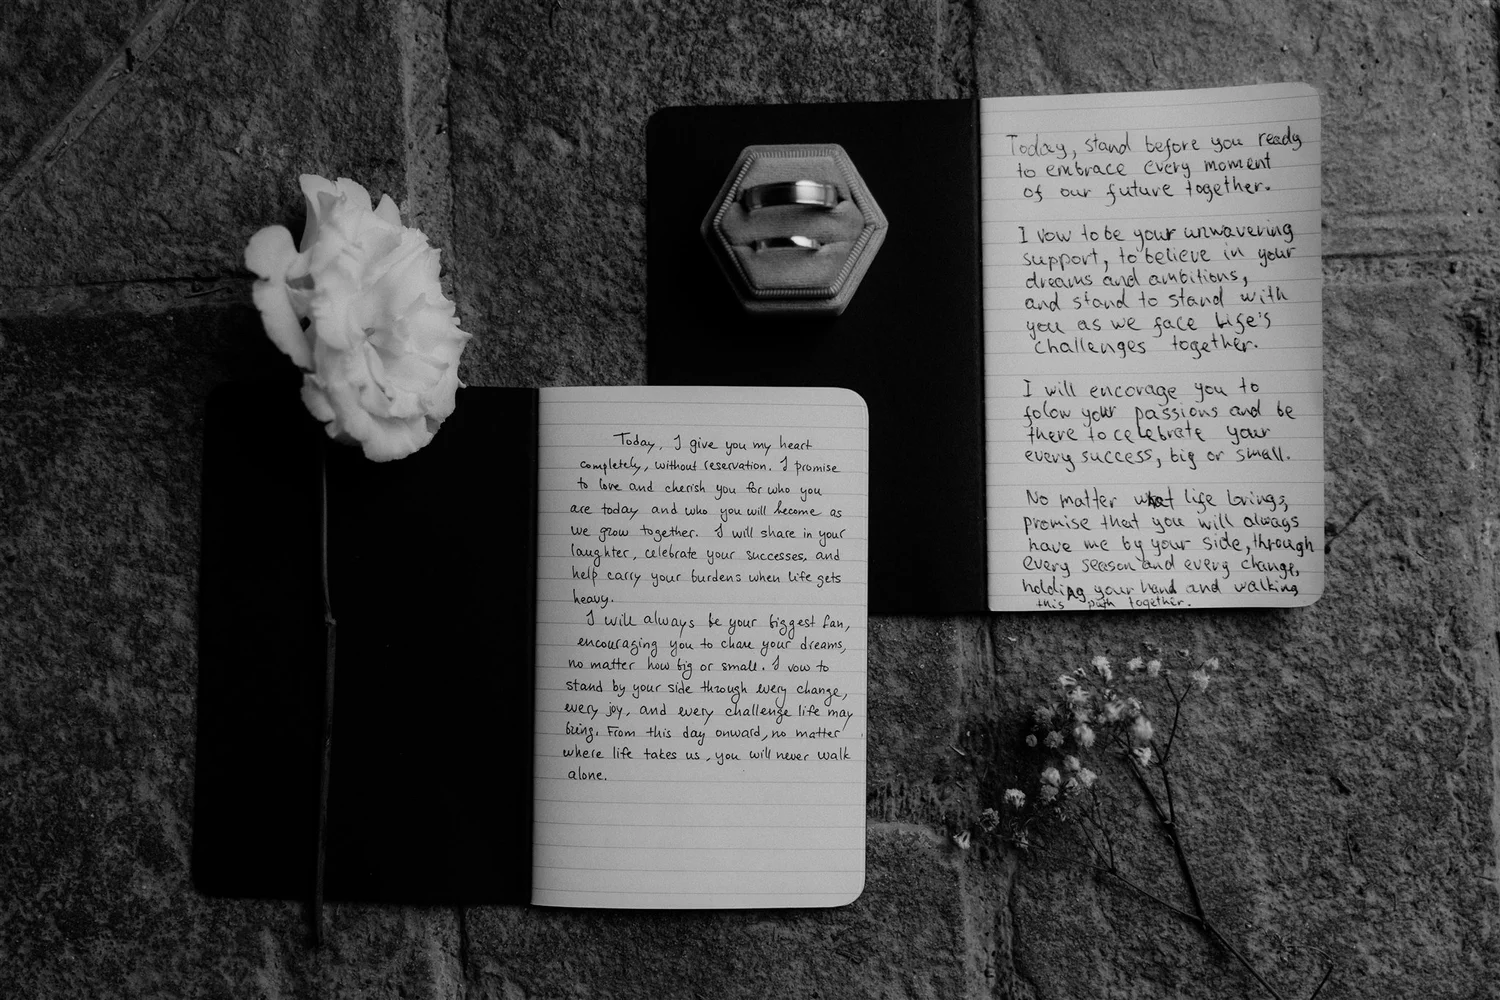 Today, I give you my heart
completely, without reservation. I promise
to love and cherish you for who you
are today and who you will become as
we grow together. I will share in your
laughter, celebrate your successes, and
help carry your burdens when life gets
heavy.
I will always be your biggest fan,
encouraging you to chase your dreams,
no matter how big or small. I vow to
stand by your side through every change,
every joy, and every challenge life may
bring. From this day onward, no matter
where life takes us, you will never walk
alone.
Today, stand before you ready
to embrace every moment
of our future together.
I vow to be your unwavering
support, to believe in your
dreams and ambitions,
and stand to stand with
you as we face life's
challenges together.
I will encorage you to
folow your passions and be
there to celebrate your
every success, big or small.
No matter what life brings,
promise that you will always
have me by your side, through
every season and every change,
holding your hand and walking
this path together.